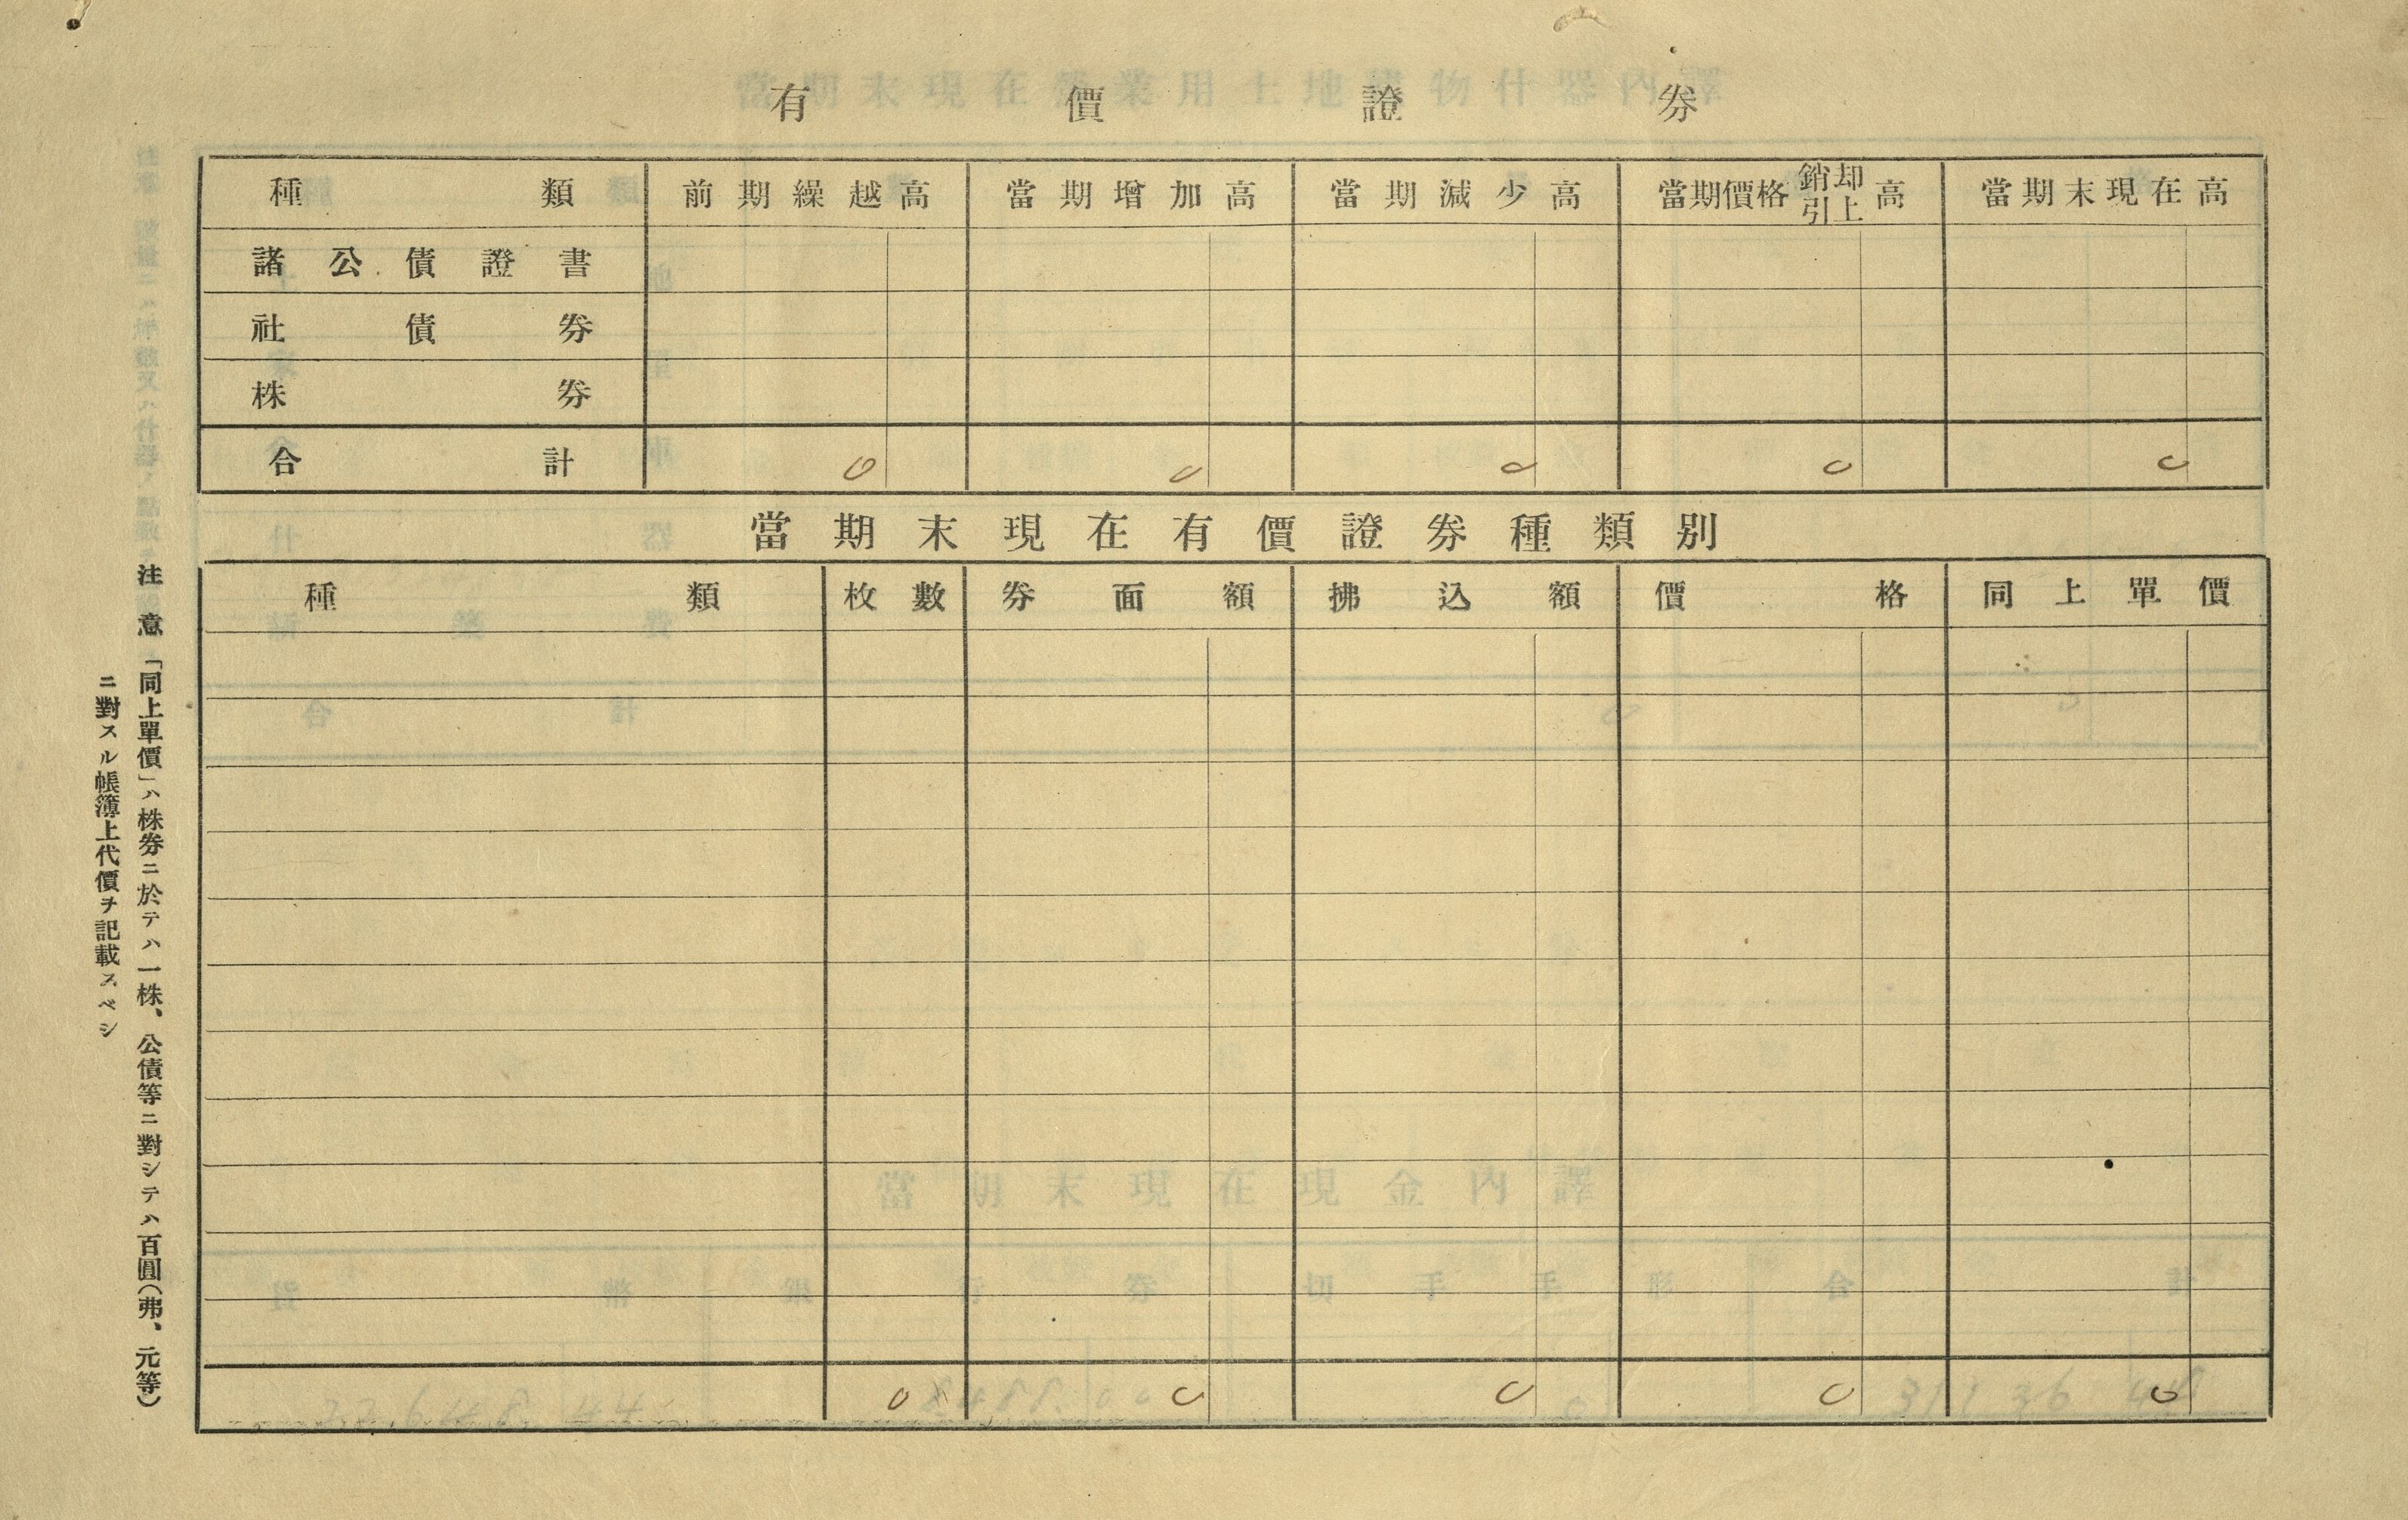 有價證券
種類 前期繰越高 當期增加高 當期減少高 當期價格銷却引上高 當期末現在高
諸公債證書
社債券
株券
合計 0 0 0 0 0
當期末現在有價證券種類別
種類 枚數 券面額 拂込額 價格 同上單價
0 0 0 0 0
注意 「同上單價」ハ株券ニ於テハ一株、公債等ニ對シテハ百圓(弗、元等)
ニ對スル帳簿上代價ヲ記載スベシ